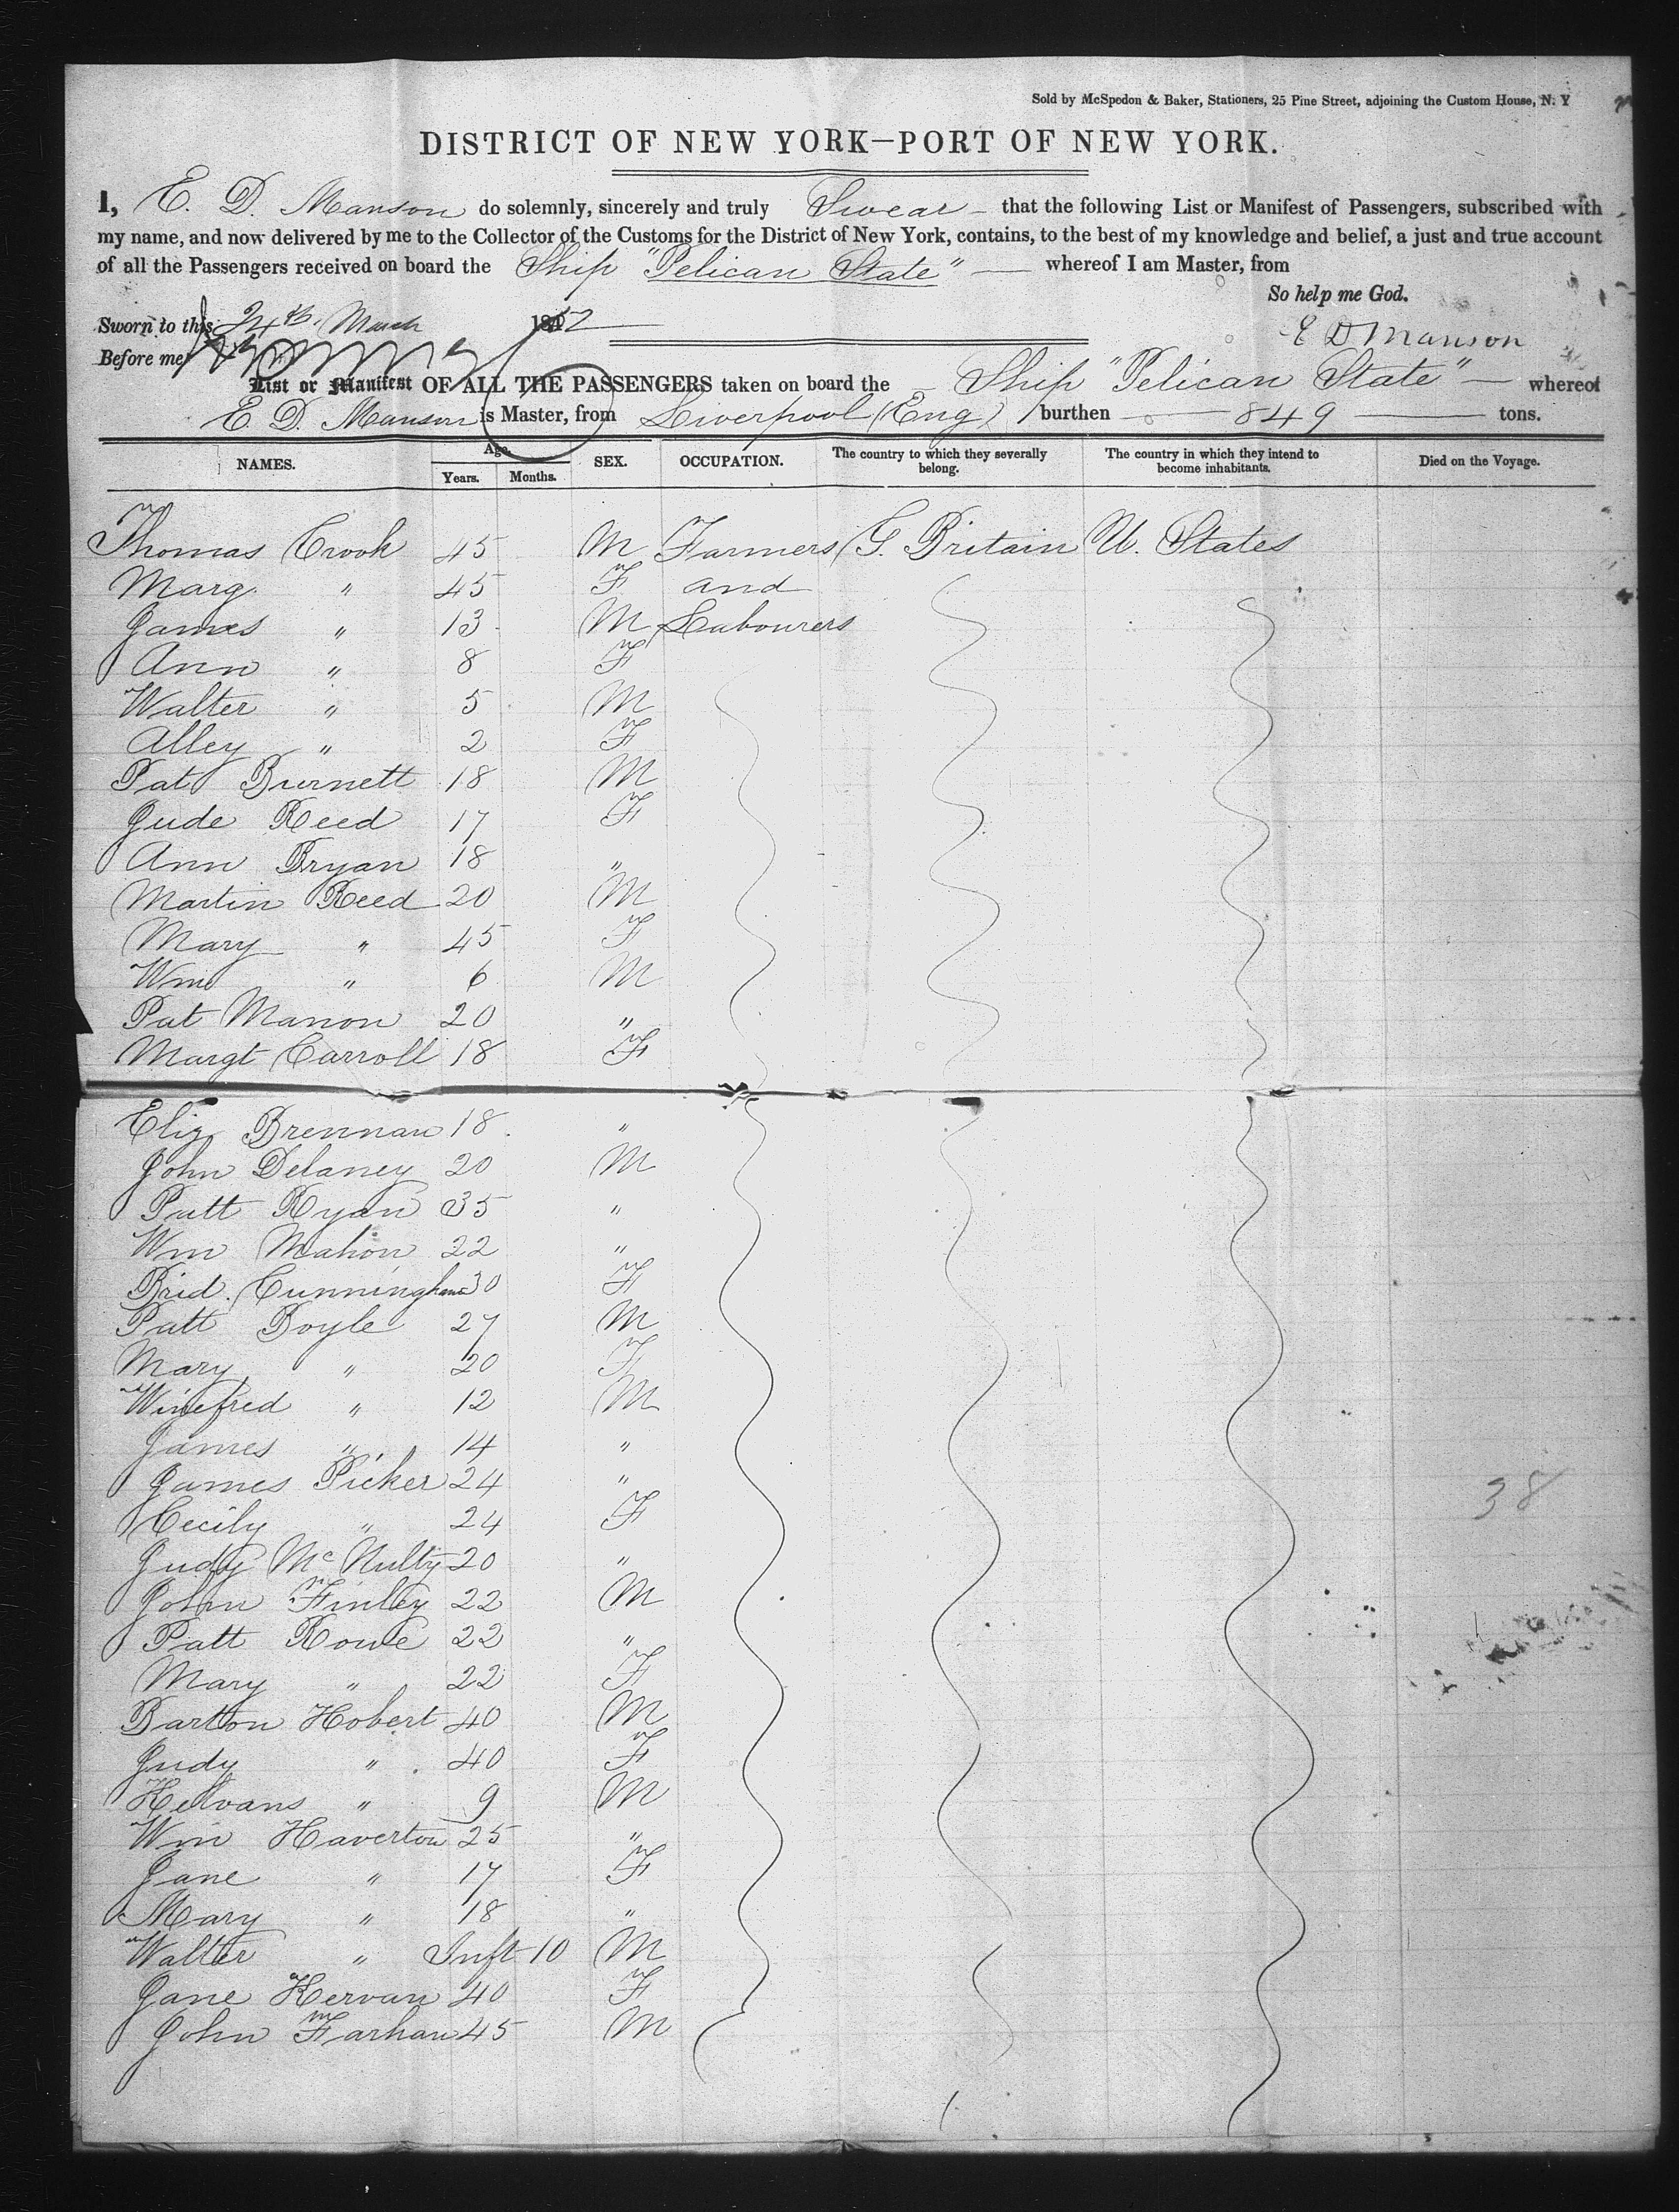 Sold by McSpedon & Baker, Stationers, 25 Pine Street, adjoining the Custom House, N. Y
DISTRICT OF NEW YORK—PORT OF NEW YORK.
I, E. D. Manson do solemnly, sincerely and truly Swear that the following List or Manifest of Passengers, subscribed with
my name, and now delivered by me to the Collector of the Customs for the District of New York, contains, to the best of my knowledge and belief, a just and true account
of all the Passengers received on board the Ship "Pelican State" whereof I am Master, from
So help me God.
Sworn to this 24th March 1852
E D Manson
Before me
List or Manifest OF ALL THE PASSENGERS taken on board the Ship "Pelican State" whereof
E. D. Manson is Master, from Liverpool (Eng) burthen 849 tons.
NAMES. Age. Years. Months. SEX. OCCUPATION. The country to which they severally belong. The country in which they intend to become inhabitants. Died on the Voyage.
Thomas Crook 45 M Farmers G. Britain U. States
Marg. " 45 F and
James " 13 M Labourers
Ann " 8 F
Walter " 5 M
Alley " 2 F
Pat Burnett 18 M
Jude Reed 17 F
Ann Bryan 18 "
Martin Reed 20 M
Mary " 45 F
Wm " 6 M
Pat Manon 20 "
Margt Carroll 18 F
Eliz Brennan 18 "
John Delaney 20 M
Patt Ryan 35 "
Wm Mahon 22 "
Brid. Cunningham 30 F
Patt Boyle 27 M
Mary " 20 F
Winefred " 12 M
James " 14 "
James Picker 24 "
Cecily " 24 F
38
Judy McNulty 20 "
John Finley 22 M
Patt Rowe 22 "
Mary " 22 F
Barton Hobert 40 M
Judy " 40 F
Kervans " 9 M
Wm Haverton 25 "
Jane " 17 F
Mary " 18 "
Walter " Inft 10 M
Jane Kervan 40 F
John Farhan 45 M